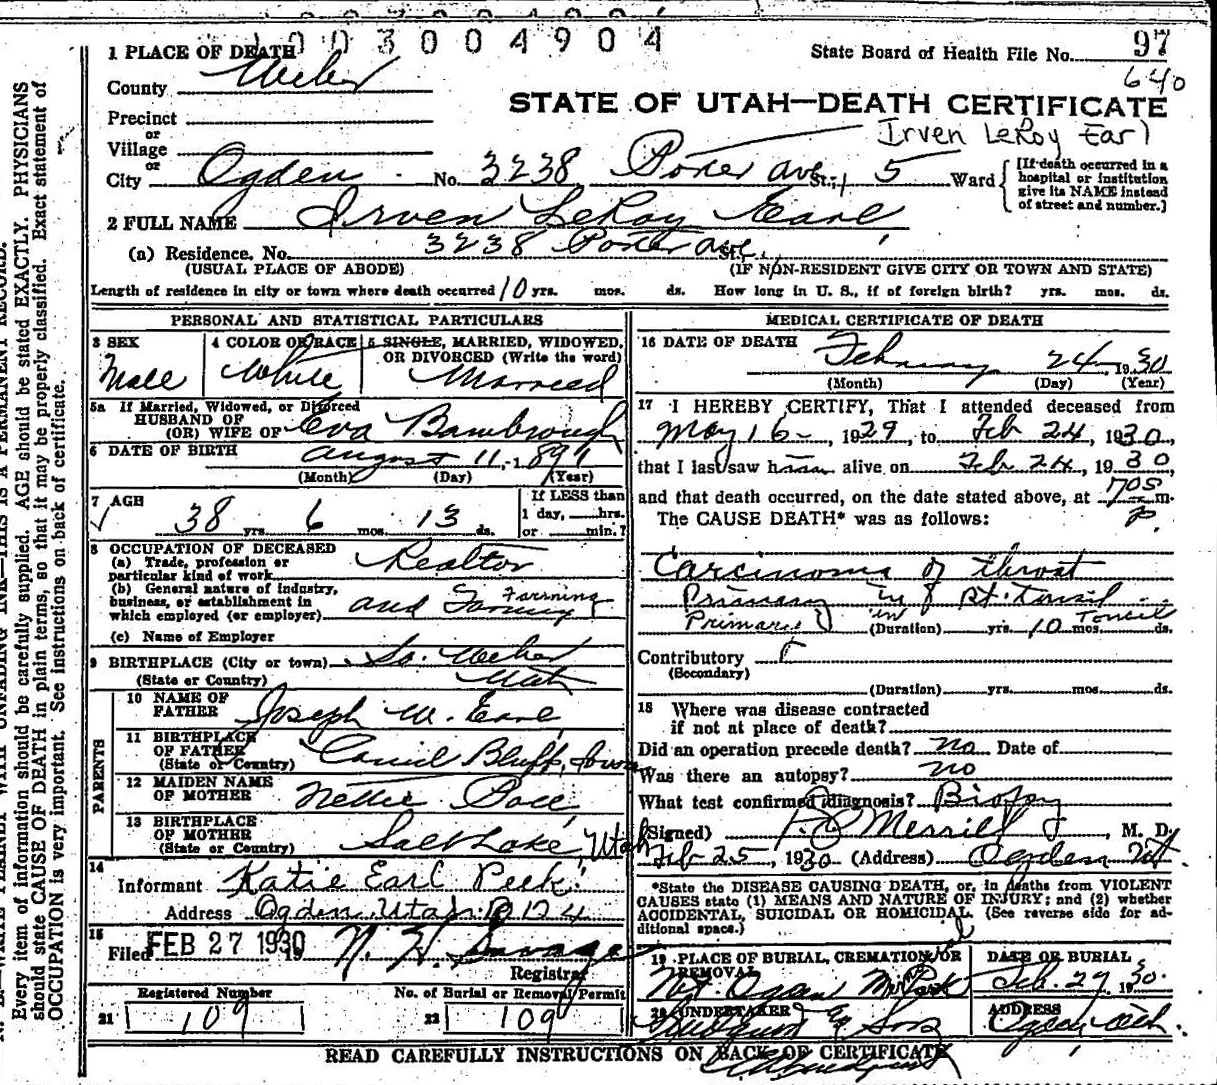 1003004904
1 PLACE OF DEATH
State Board of Health File No. 97
640
County Weber
STATE OF UTAH—DEATH CERTIFICATE
Precinct
or
Village
or
Irven LeRoy Earl
City Ogden No. 3238 Porter ave St.; 5 Ward
[If death occurred in a hospital or institution give its NAME instead of street and number.]
2 FULL NAME Irven LeRoy Earl
(a) Residence. No. 3238 Porter ave St.
(USUAL PLACE OF ABODE) (IF NON-RESIDENT GIVE CITY OR TOWN AND STATE)
Length of residence in city or town where death occurred 10 yrs. mos. ds. How long in U. S., if of foreign birth? yrs. mos. ds.
PERSONAL AND STATISTICAL PARTICULARS
3 SEX
Male
4 COLOR OR RACE
White
5 SINGLE, MARRIED, WIDOWED, OR DIVORCED (Write the word)
Married
5a If Married, Widowed, or Divorced
HUSBAND OF
(OR) WIFE OF Eva Bambrough
6 DATE OF BIRTH August 11, 1891
(Month) (Day) (Year)
7 AGE
38 yrs. 6 mos. 13 ds.
If LESS than
1 day, hrs.
or min.?
8 OCCUPATION OF DECEASED
(a) Trade, profession or
particular kind of work Realtor
(b) General nature of industry,
business, or establishment in
which employed (or employer) and Farming
Farming
(c) Name of Employer
9 BIRTHPLACE (City or town) So. Weber
(State or Country) Utah
PARENTS
10 NAME OF
FATHER Joseph W. Earl
11 BIRTHPLACE
OF FATHER
(State or Country) Council Bluff, Iowa
12 MAIDEN NAME
OF MOTHER Nettie
13 BIRTHPLACE
OF MOTHER
(State or Country) Salt Lake, Utah
14
Informant Katie Earl Peek
Address Ogden, Utah R D 4
15
Filed FEB 27 1930 N. H. Savage
Registrar
Registered Number No. of Burial or Removal Permit
21 109 22 109
MEDICAL CERTIFICATE OF DEATH
16 DATE OF DEATH February 24 1930
(Month) (Day) (Year)
17 I HEREBY CERTIFY, That I attended deceased from
May 16, 1929, to Feb 24, 1930,
that I last saw him alive on Feb 24, 1930
and that death occurred, on the date stated above, at 705 p m.
The CAUSE DEATH* was as follows:
Carcinoma of throat
Primary in rt. tonsil
Primary in Toncil
(Duration) yrs. 10 mos. ds.
Contributory
(Secondary)
(Duration) yrs. mos. ds.
18 Where was disease contracted
if not at place of death?
Did an operation precede death? no Date of
Was there an autopsy? no
What test confirmed diagnosis? Biopsy
(Signed) Merrill, M. D.
Feb 25, 1930 (Address) Ogden Ut.
*State the DISEASE CAUSING DEATH, or, in deaths from VIOLENT
CAUSES state (1) MEANS AND NATURE OF INJURY; and (2) whether
ACCIDENTAL, SUICIDAL OR HOMICIDAL. (See reverse side for ad-
ditional space.)
19 PLACE OF BURIAL, CREMATION OR
REMOVAL
Ogden
DATE OF BURIAL
Feb. 27, 1930.
20 UNDERTAKER
& Sons
ADDRESS
Ogden Utah.
READ CAREFULLY INSTRUCTIONS ON BACK OF CERTIFICATE
Every item of information should be carefully supplied. AGE should be stated EXACTLY. PHYSICIANS
should state CAUSE OF DEATH in plain terms, so that it may be properly classified. Exact statement of
OCCUPATION is very important. See instructions on back of certificate.